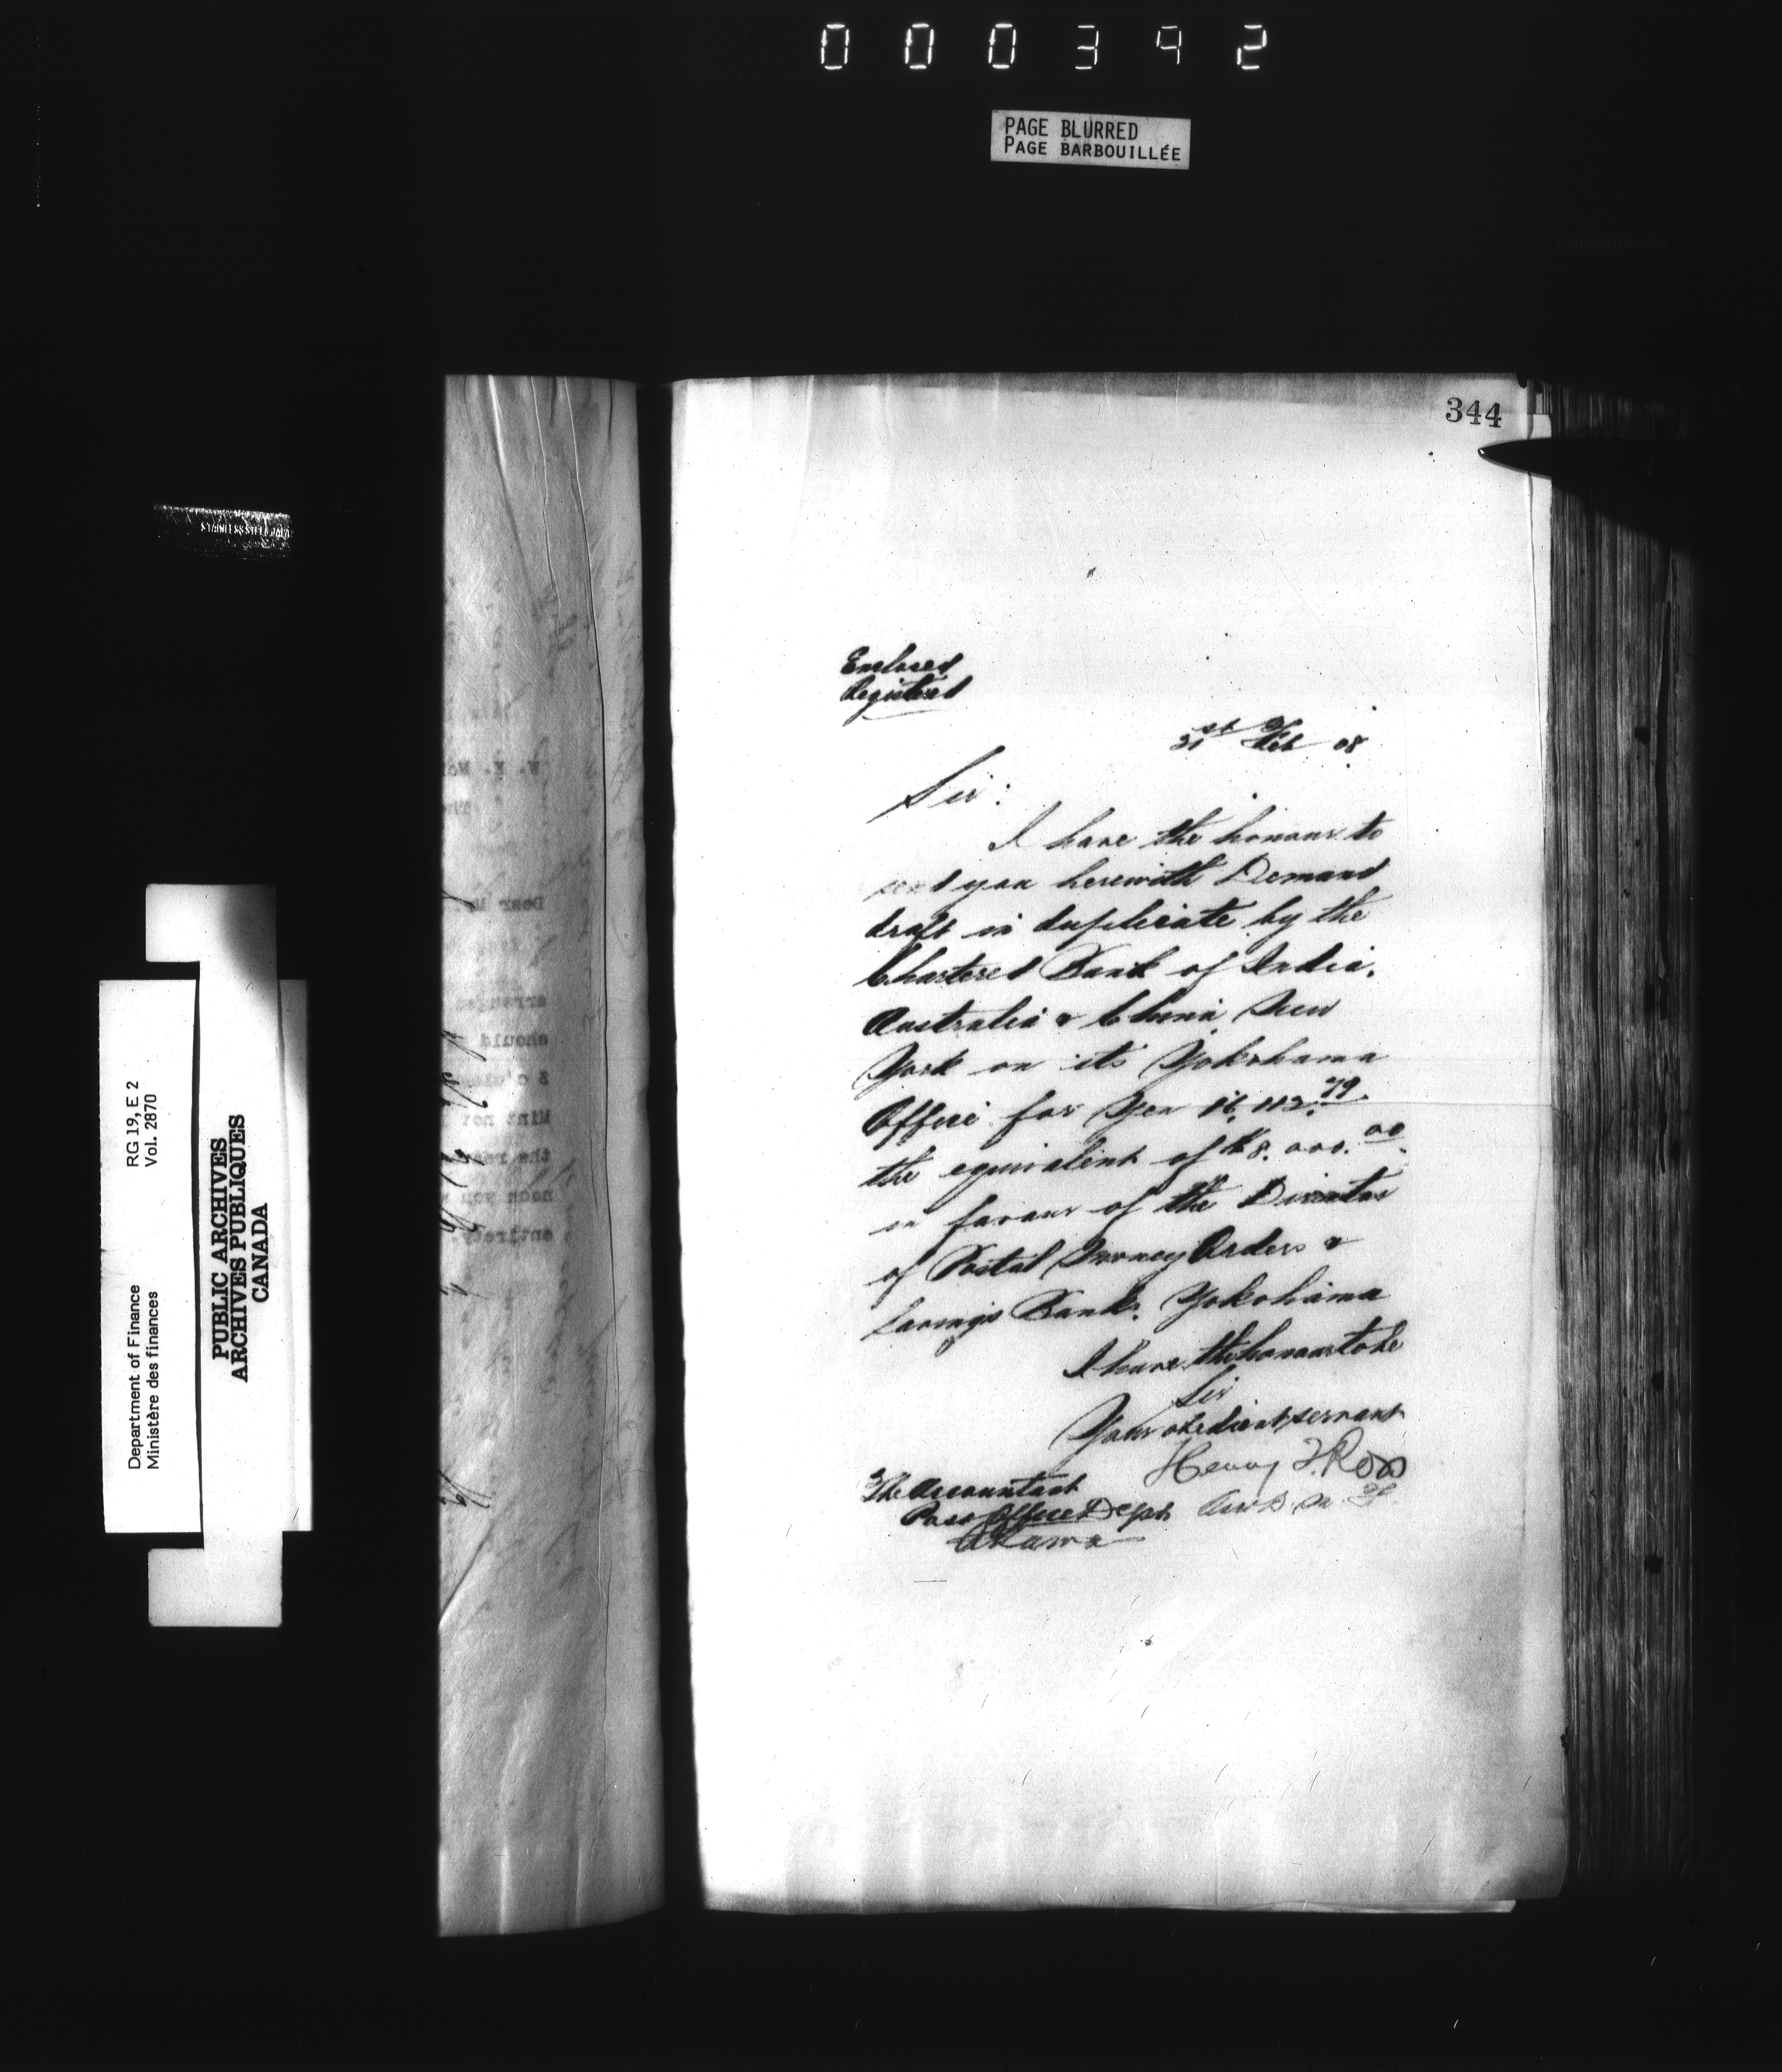 000342
PAGE BLURRED
PAGE BARBOUILLÉE
344
Enclosed
Registered
21st Feb 08
Sir:
I have the honour to
send you herewith Demand
draft in duplicate by the
Chartered Bank of India,
Australia & China, New
York on its Yokohama
Office for Yen 16,112.79.
the equivalent of $8.000.00.
in favour of the Director
of Postal Money Orders &
Savings Bank, Yokohama
I have the honour to be
Sir
Your obedient servant
Henry T. Ross
The Accountant
Post Office Dept
Ottawa
Department of Finance RG 19, E 2
Ministère des finances Vol. 2870
PUBLIC ARCHIVES
ARCHIVES PUBLIQUES
CANADA
Dear
should
Mint not
noon you
entirety